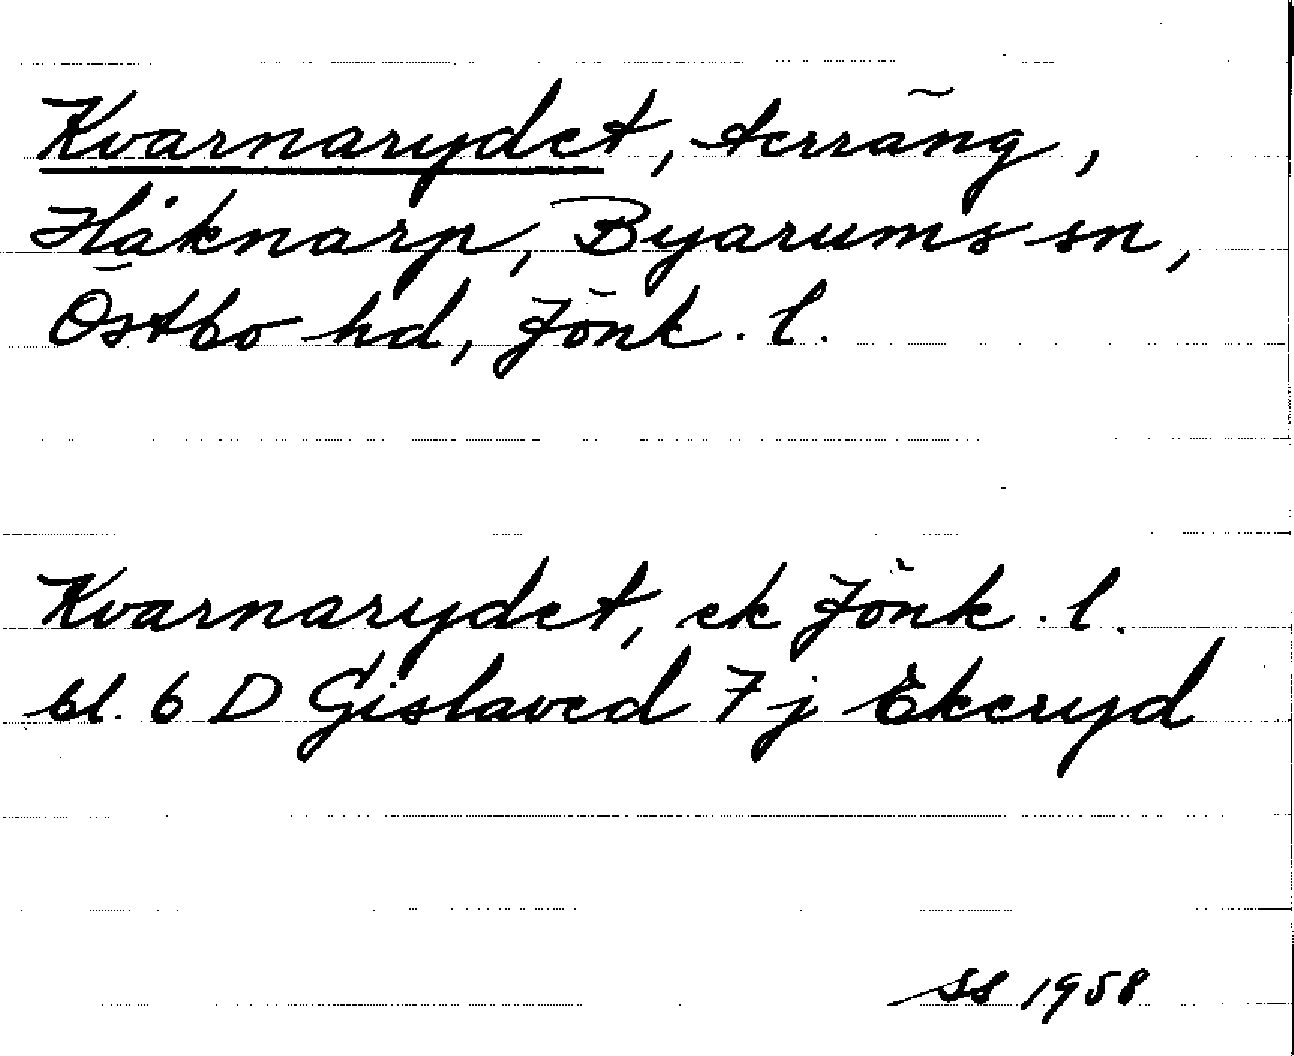 Kvarnarydet, terräng,
Håknarp, Byarums sn,
Östbo hd, Jönk. l.
Kvarnarydet, ek Jönk. l.
bl. 6 D Gislaved 7 j Ekeryd
SS 1958